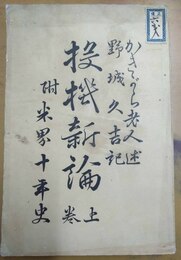 かきがら老人述
野城久吉記
投機新論 上巻
附米界十年史